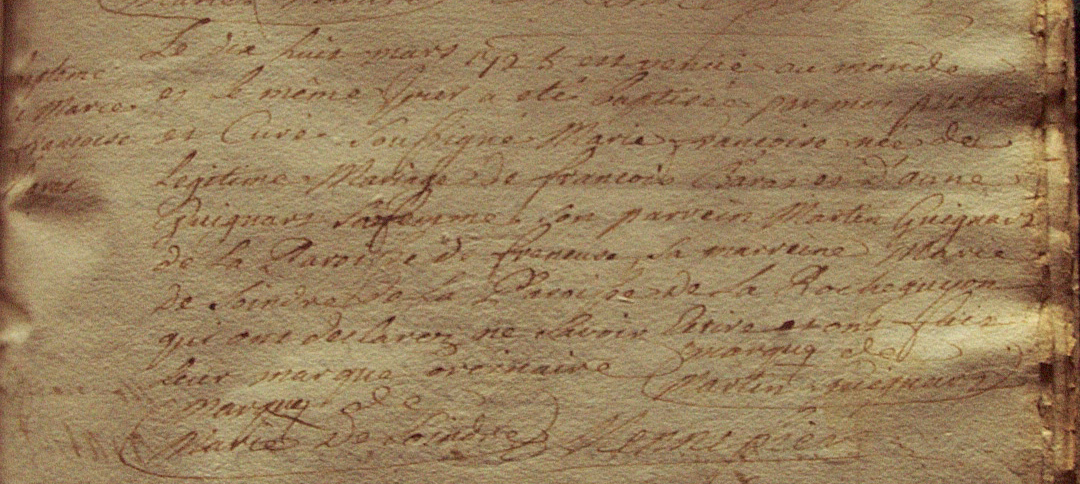 Le dix huit mars 172 est venüe au monde
et le même jour a été baptisée par moi prêtre
et Curé soussigné Marie françoise née de
legitime Mariage de françois et d'anne
Guignart sa femme. Son parrein Martin Guignart
de la Paroisse de freneuse, sa marreine Marie
de Soindre de la Paroisse de la Rocheguyon
qui ont declarez ne savoir ecrire et ont fait
leur marque ordinaire marque de
Martin guignart
marque de
Marie de Soindre
Marie
francoise